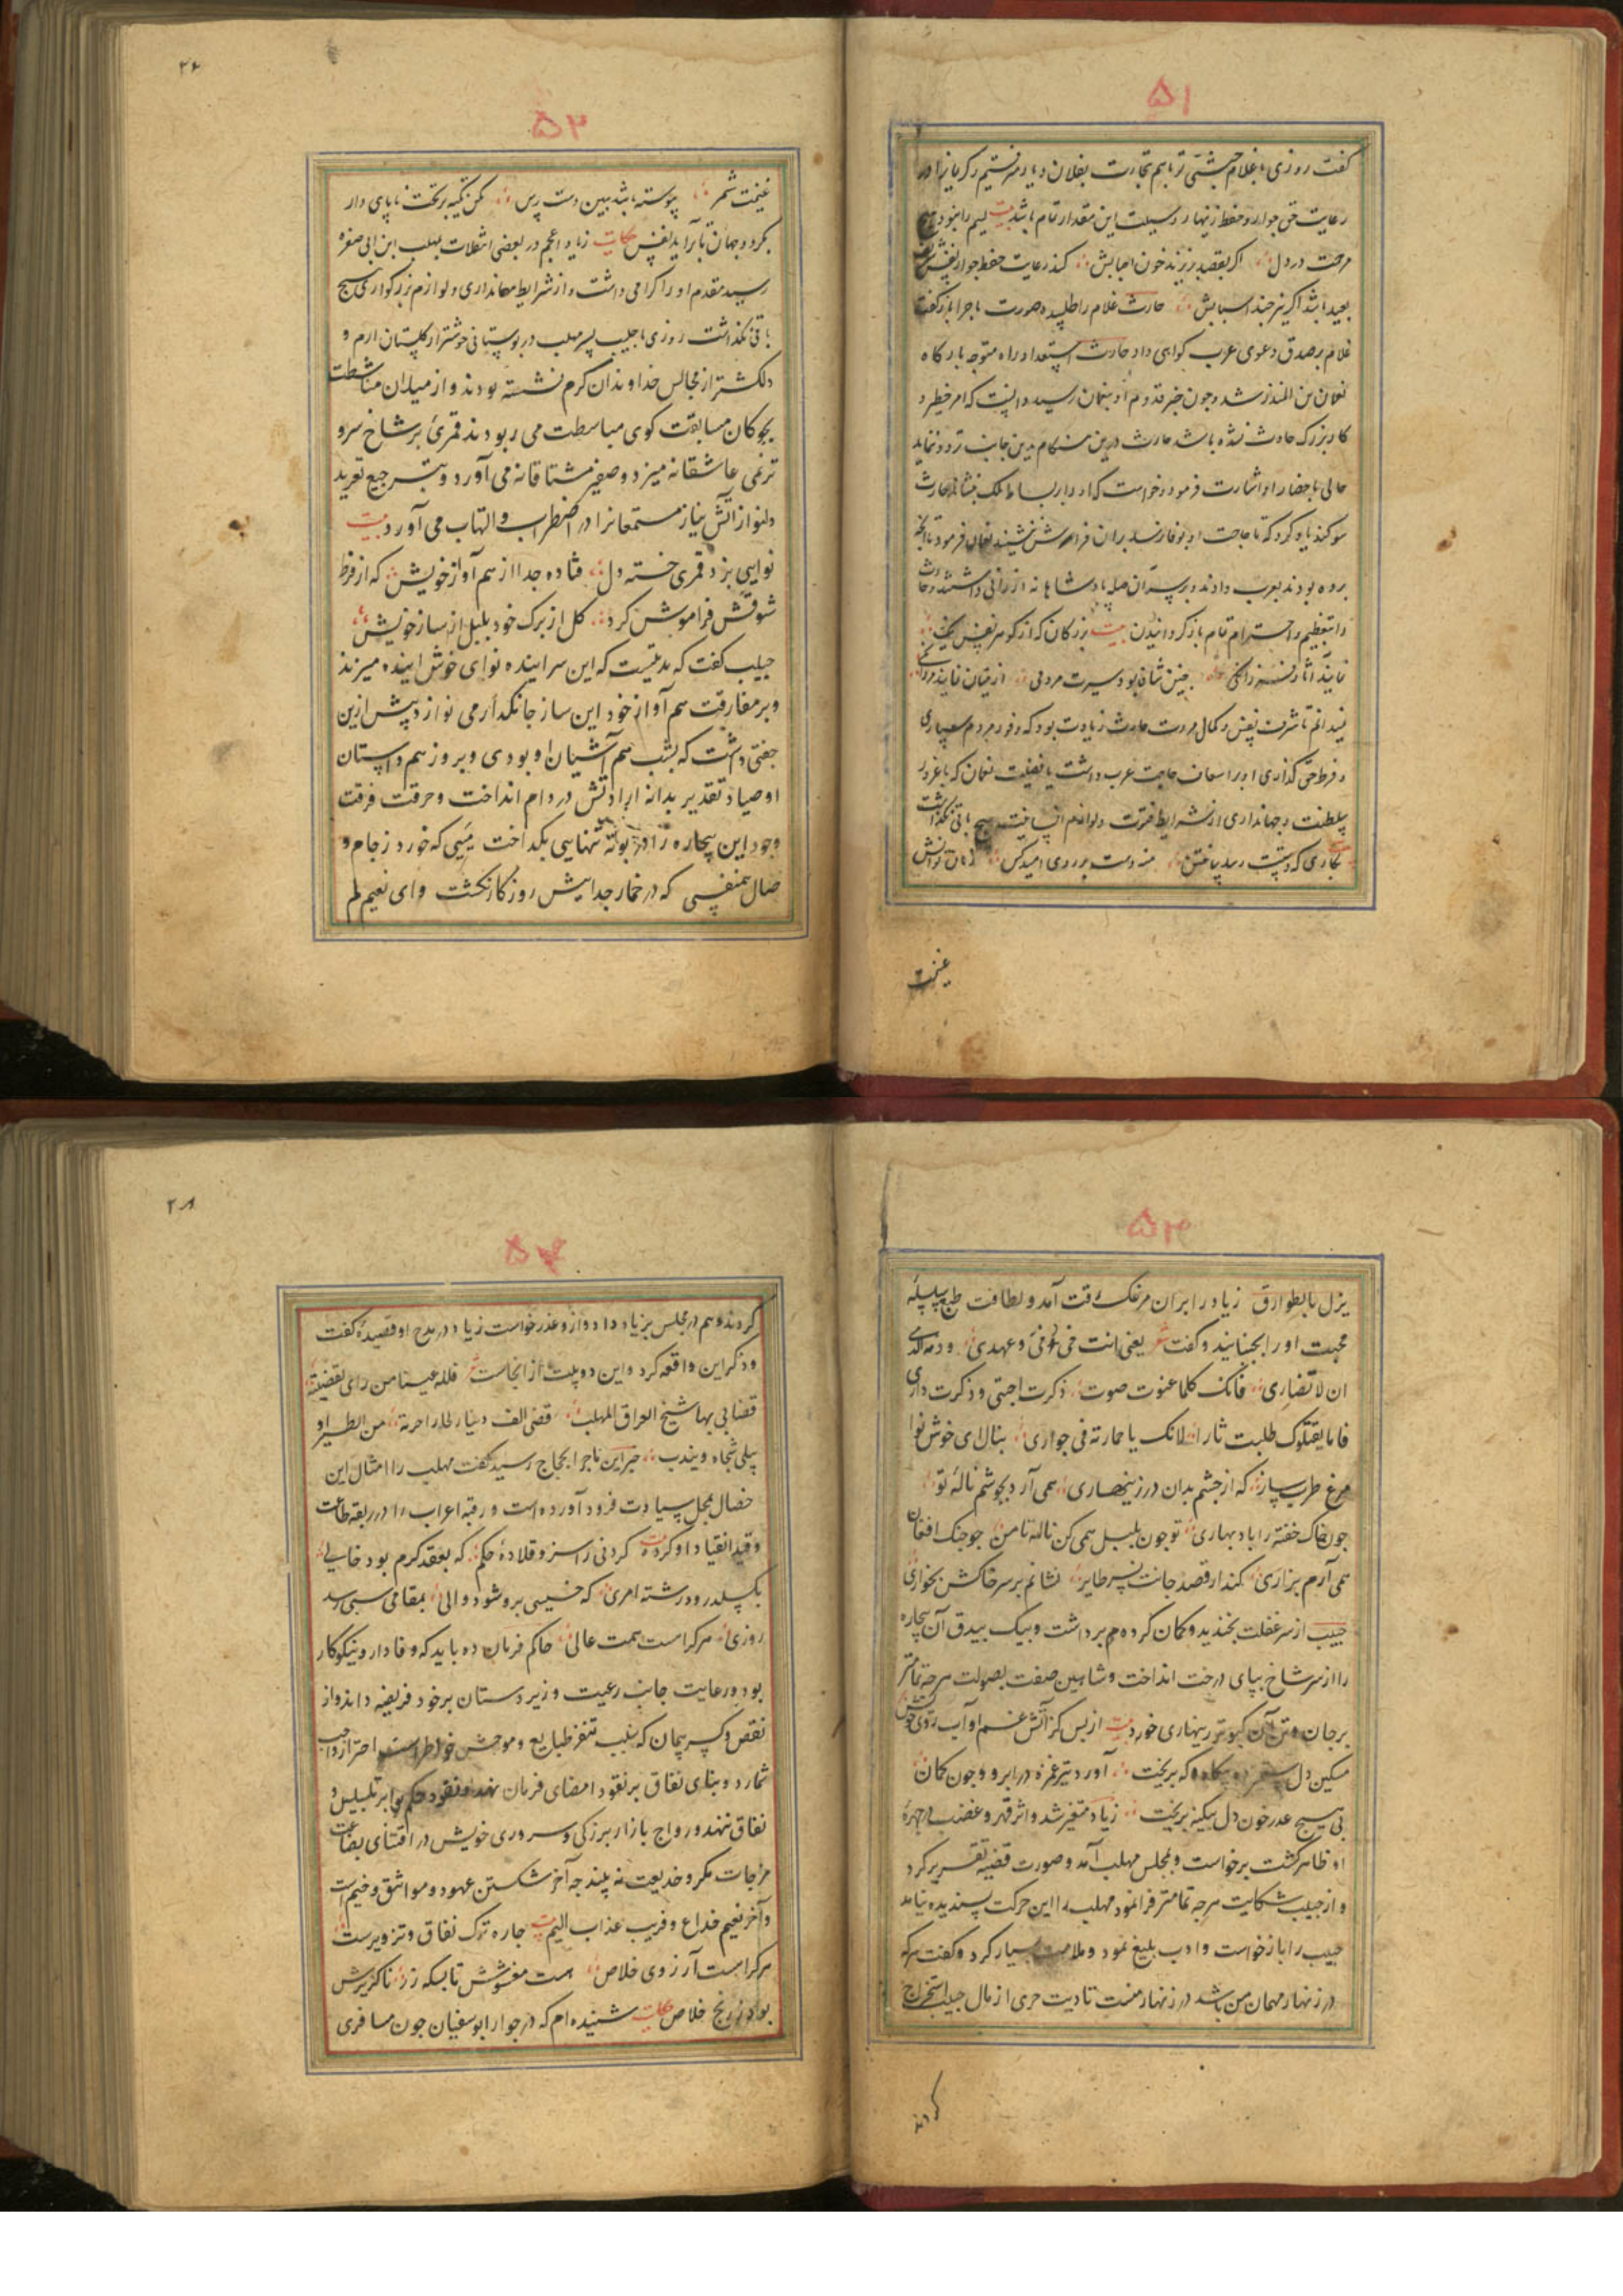 ۵۱
گفت روزی با غلام حبشی تو باهم تجارت بفلان دیار
رعایت حق جوار و حفظ زنهار و سیلت این مقدار تمام باشد بیت
مرحمت در دل اگر بقصد فرزند خون کند رعایت حفظ جوار
بعید باشد اگر اسبابش حارث غلام را طلبیده صورت ماجرا باز گفت
غلام بر صدق دعوی عرب گواهی داد حارث استعداد راه متوجه بارگاه
نعمان بن المنذر شد و چون خبر قدوم او بنعمان رسید دانست که امر خطیر و
کار بزرگ حادث شده باشد حارث درین هنگام بدین جانب تردد نماید
حالی باحضار او اشارت فرمود و خواست که او را بر بساط ملک بنشاند حارث
سوکند یاد کرد که تا حاجت او بوفا نرسد بران فراش ننشیند نعمان فرمود تا انچه
برده بودند بعرب دادند و بر سر آن صله پادشاهانه ارزانی داشتند و حارث
را بتعظیم و احترام تمام باز گردانیدن بیت بزرگان که از گوهر
نمایند آثار چنین شان بود سیرت مردمی
نمیدانم تا شرف نفس و کمال مروت حارث زیادت بود که
و فرط حق گذاری او را اسعاف حاجت عرب داشت یا فضیلت نعمان که با غرور
سلطنت و جهانداری از شرایط فتوت و لوازم هیچ باقی نگذاشت
بکاری که دستت رسد منه دست بر روی امید کس
غنیمت
۲۷
۵۲
غنیمت شمر پیوسته باشد بدین دست رس مکن تکیه بر تخت ناپای دار
بگردد جهان تا براید نفس حکایت زیاد اعجم در بعضی انتقلات بمهلب ابن ابی صفره
رسید مقدم او را گرامی داشت و از شرایط مهمانداری و لوازم بزرگواری هیچ
باقی نگذاشت روزی با حبیب پسر مهلب در بوستانی خوشتر از گلستان ارم و
دلکشتر از مجالس خداوندان کرم نشسته بودند و از میدان مناشطت
بچوکان مسابقت کوی مباسطت می ربودند قمری بر شاخ سرو
ترنمی عاشقانه میزد و صفیر مشتاقانه می آورد و بترجیع تغرید
دلنواز آتش نیاز مستمعانرا در اضطراب و التهاب می آورد بیت
نوایی بزد قمری خسته دل فتاده جدا از هم آواز خویش که از فرط
شوقش فراموش کرد کل از برک خود بلبل از ساز خویش
حبیب گفت که مدتیست که این سراینده نوای خوش اینده میزند
و بر مفارقت هم آواز خود این ساز جانکداز می نوازد پیش ازین
جفتی داشت که بشب هم آشیان او بودی و بروز هم داستان
او صیاد تقدیر بدانه ارادتش در دام انداخت و حرقت فرقت
وجود این بیچاره را در بوته تنهایی بکداخت مَیی که خورد ز جام و
صال همنفسی که در خمار جداییش روزگار نکشت وای نعیم لم
۵۳
یزل بالطوارق زیاد را بران مرغک رقت آمد و لطافت طبع سلسله
محبت او را بجنبانید و گفت شعر یغنی انت فی ذممی و عهدی و ذمة والدی
ان لا تضاری فانک کلما غنوت صوت ذکرت احبتی و ذکرت داری
فاما یقتلوک طلبت ثارا لانک یا حمامة فی جواری بنال ای خوش نوا
مرغ طرب ساز که از چشم بدان در زینهاری همی آرد بجوشم ناله تو
چون خاک خفته را باد بهاری تو چون بلبل همی کن ناله تا من چو چنک افغان
همی آرم بزاری کند ار قصد جانت نسر طایر نشانم بر سر خاکش بخواری
حبیب از سر غفلت بخندید و کمان گروهه برداشت و بیک بیدق آن بیچاره
را از سر شاخ بپای درخت انداخت و شاهین صفت بصولت هرچه تمامتر
بر جان و تن آن کبوتر زینهاری خورد بیت از بس کز آتش غم او آب روی خویش
مسکین دل که بریخت آورد تیر غمزه در ابرو و چون کمان
بی هیچ عذر خون دل بیکنه بریخت زیاد متغیر شد و اثر قهر و غضب در چهره
او ظاهر گشت برخواست و بمجلس مهلب آمد و صورت قضیه تقریر کرد
و از حبیب شکایت هرچه تمامتر فرا نمود مهلب را این حرکت پسندیده نیامد
حبیب را باز خواست و ادب بلیغ نمود و ملامت بسیار کرد و گفت هر که
در زنهار مهمان من باشد در زنهار منست تا دیت حری از مال حبیب استخراج
کردند
۲۸
۵۴
کردند و هم در مجلس بزیاد داد و از و عذر خواست زیاد در مدح او قصیده گفت
و ذکر این واقعه کرد و این دو بیت از انجاست شعر فلله عینا من رای لقضیة
قضا بی بها شیخ العراق المهلب قضی الف دینار لجار اجرته من الطیر او
یبکی شجاه و یندب خبر این ماجرا بحجاج رسید گفت مهلب را امثال این
خصال بمحل سیادت فرود آورده است و رقبه اعراب را در ربقه طاعت
و قید انقیاد او کرده بیت کردنی را سزد قلاده حکم که بعقد کرم بود خالی
بکسلد زود رشته امری که خسیسی برو شود والی بمقامی همی رسد
روزی هر کرا هست همت عالی حاکم فرمان ده باید که وفادار و نیکوکار
بود و رعایت جانب رعیت و زیر دستان بر خود فریضه داند و از
نقض و کسر پیمان که سبب تنفر طبایع و موحش خواطر است احتراز واجب
شمارد و بنای نفاق بر نقود امضای فرمان ننهد و نقود حکم را بر تلبیس و
نفاق ننهد و رواج بازار بزرکی و سروری خویش در اقتنای بضاعت
مزجات مکر و خدیعت نه پسندد چه آخر شکستن عهود و مواثیق وخیم است
و آخر نعیم خداع و فریب عذاب الیم بیت چاره ترک نفاق و تزویرست
هر کرا هست آرزوی خلاص هست مغشوش تا بسکه زر ناگزیرش
بود ز رنج خلاص حکایت شنیده ام که در جوار ابو سفیان چون مسافری